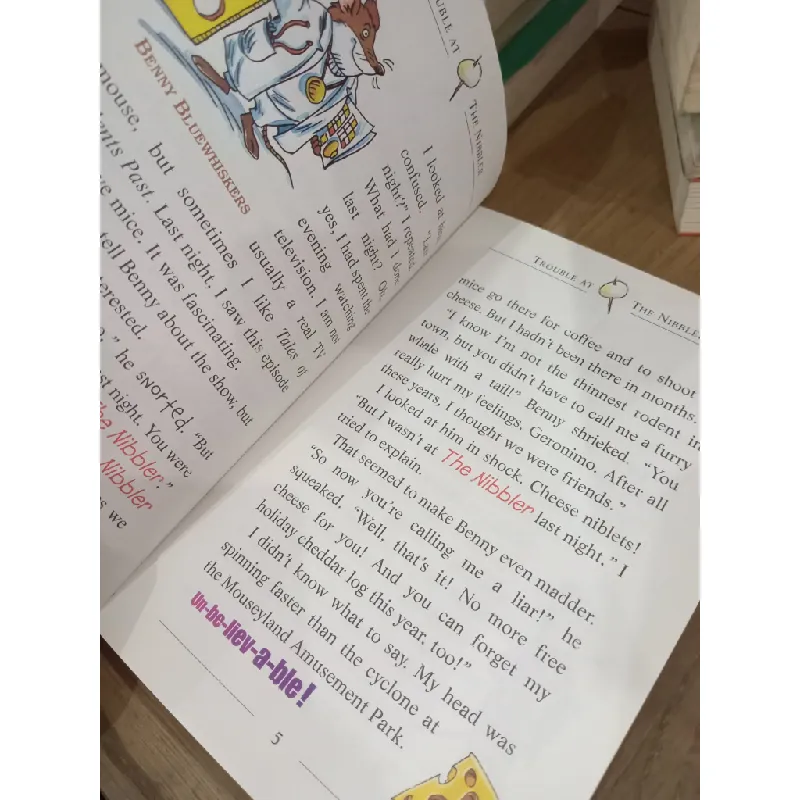 BENNY BLUEWHISKERS
TROUBLE AT
THE NIBBLER
I looked at
confused.
night?" I repeated.
What had I done
last night? Oh,
yes, I had spent the
evening watching
television. I am not
usually a real TV
mouse, but sometimes I like Tales of
Past. Last night, I saw this episode
mice. It was fascinating.
tell Benny about the show, but
he snorted. "But
night. You were
The Nibbler."
Nibbler
we
TROUBLE AT
THE NIBBLER
mice go there for coffee and to shoot
cheese. But I hadn't been there in months.
"I know I'm not the thinnest rodent in
town, but you didn't have to call me a furry
whale with a tail!" Benny shrieked. "You
really hurt my feelings, Geronimo. After all
these years, I thought we were friends."
I looked at him in shock. Cheese niblets!
"But I wasn't at The Nibbler last night," I
tried to explain.
That seemed to make Benny even madder.
"So now you're calling me a liar!" he
squeaked. "Well, that's it! No more free
cheese for you! And you can forget my
holiday cheddar log this year, too!"
I didn't know what to say. My head was
spinning faster than the cyclone at
the Mouseyland Amusement Park.
Un-be-liev-a-ble!
5